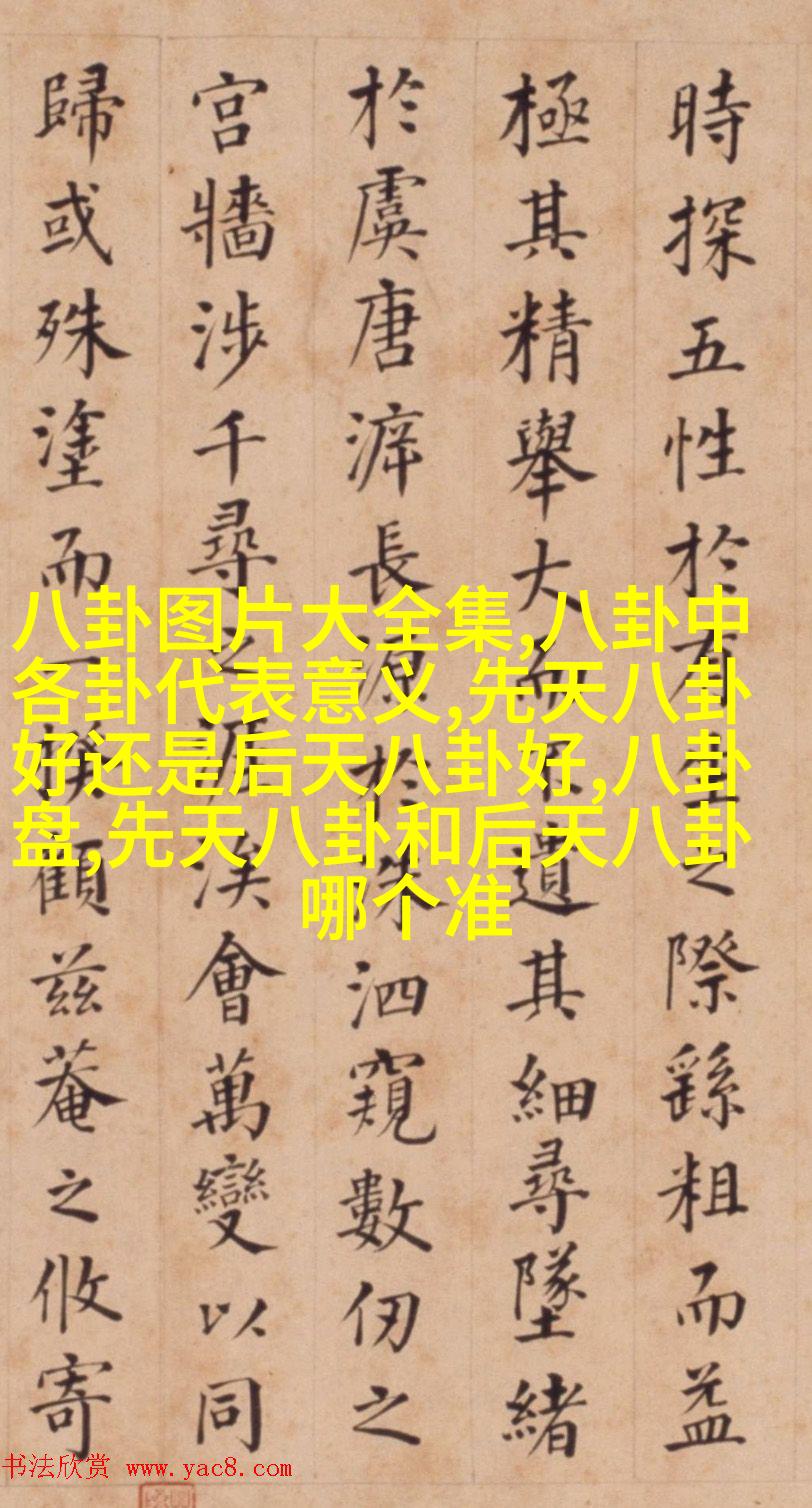 時探五性於有生之際繇粗而益
極其精舉大而不遺其細尋墜緒
於虞唐濘長源於洙泗窺數仞之
宮牆涉千尋之涯涘會萬變以同
歸或殊塗而一揆顧兹菴之攸寄
八卦图片大全集,八卦中
各卦代表意义,先天八卦
好还是后天八卦好,八卦
盘,先天八卦和后天八卦
哪个准
书法欣赏 www.yac8.com